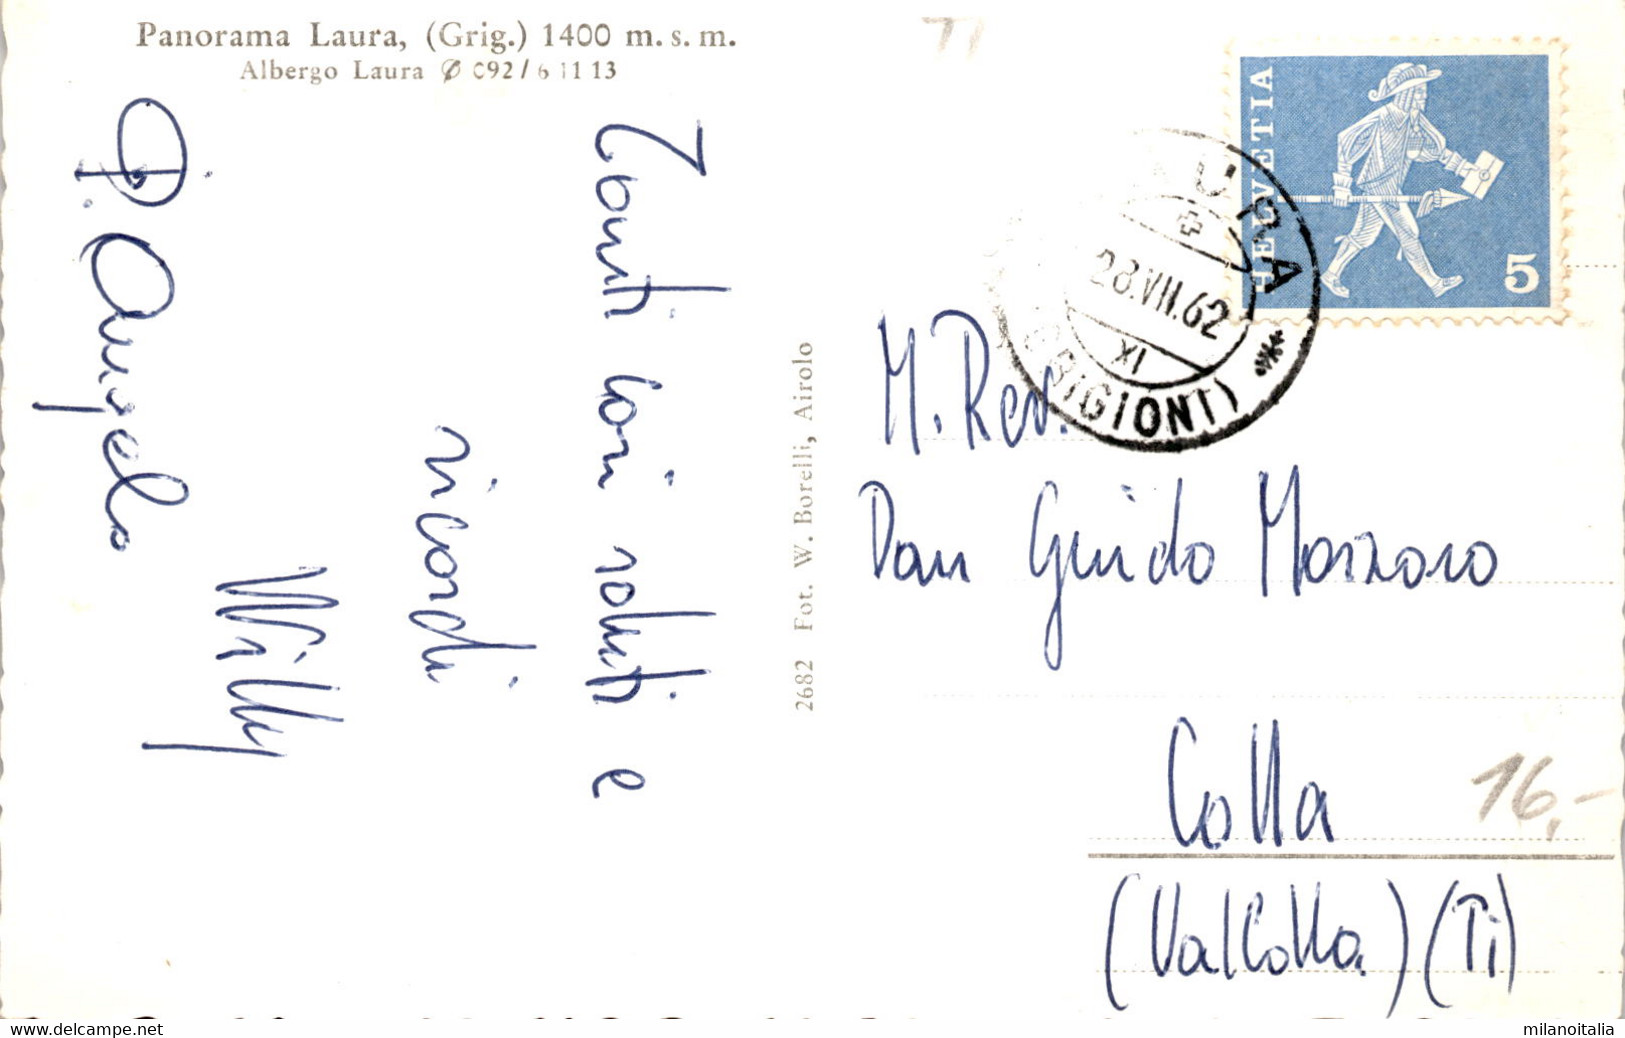 Panorama Laura, (Grig.) 1400 m. s. m.
Albergo Laura ✆ 092 / 6 11 13
Tanti cari saluti e
ricordi
Willy
D. Angelo
2682 Fot. W. Borelli, Airolo
TI
HELVETIA
5
LAURA
28.VII.62
XI
(GRIGIONI)
M. Rev.
Don Guido
Colla
(Valcolla) (Ti)
16,-
www.delcampe.net
milanoitalia